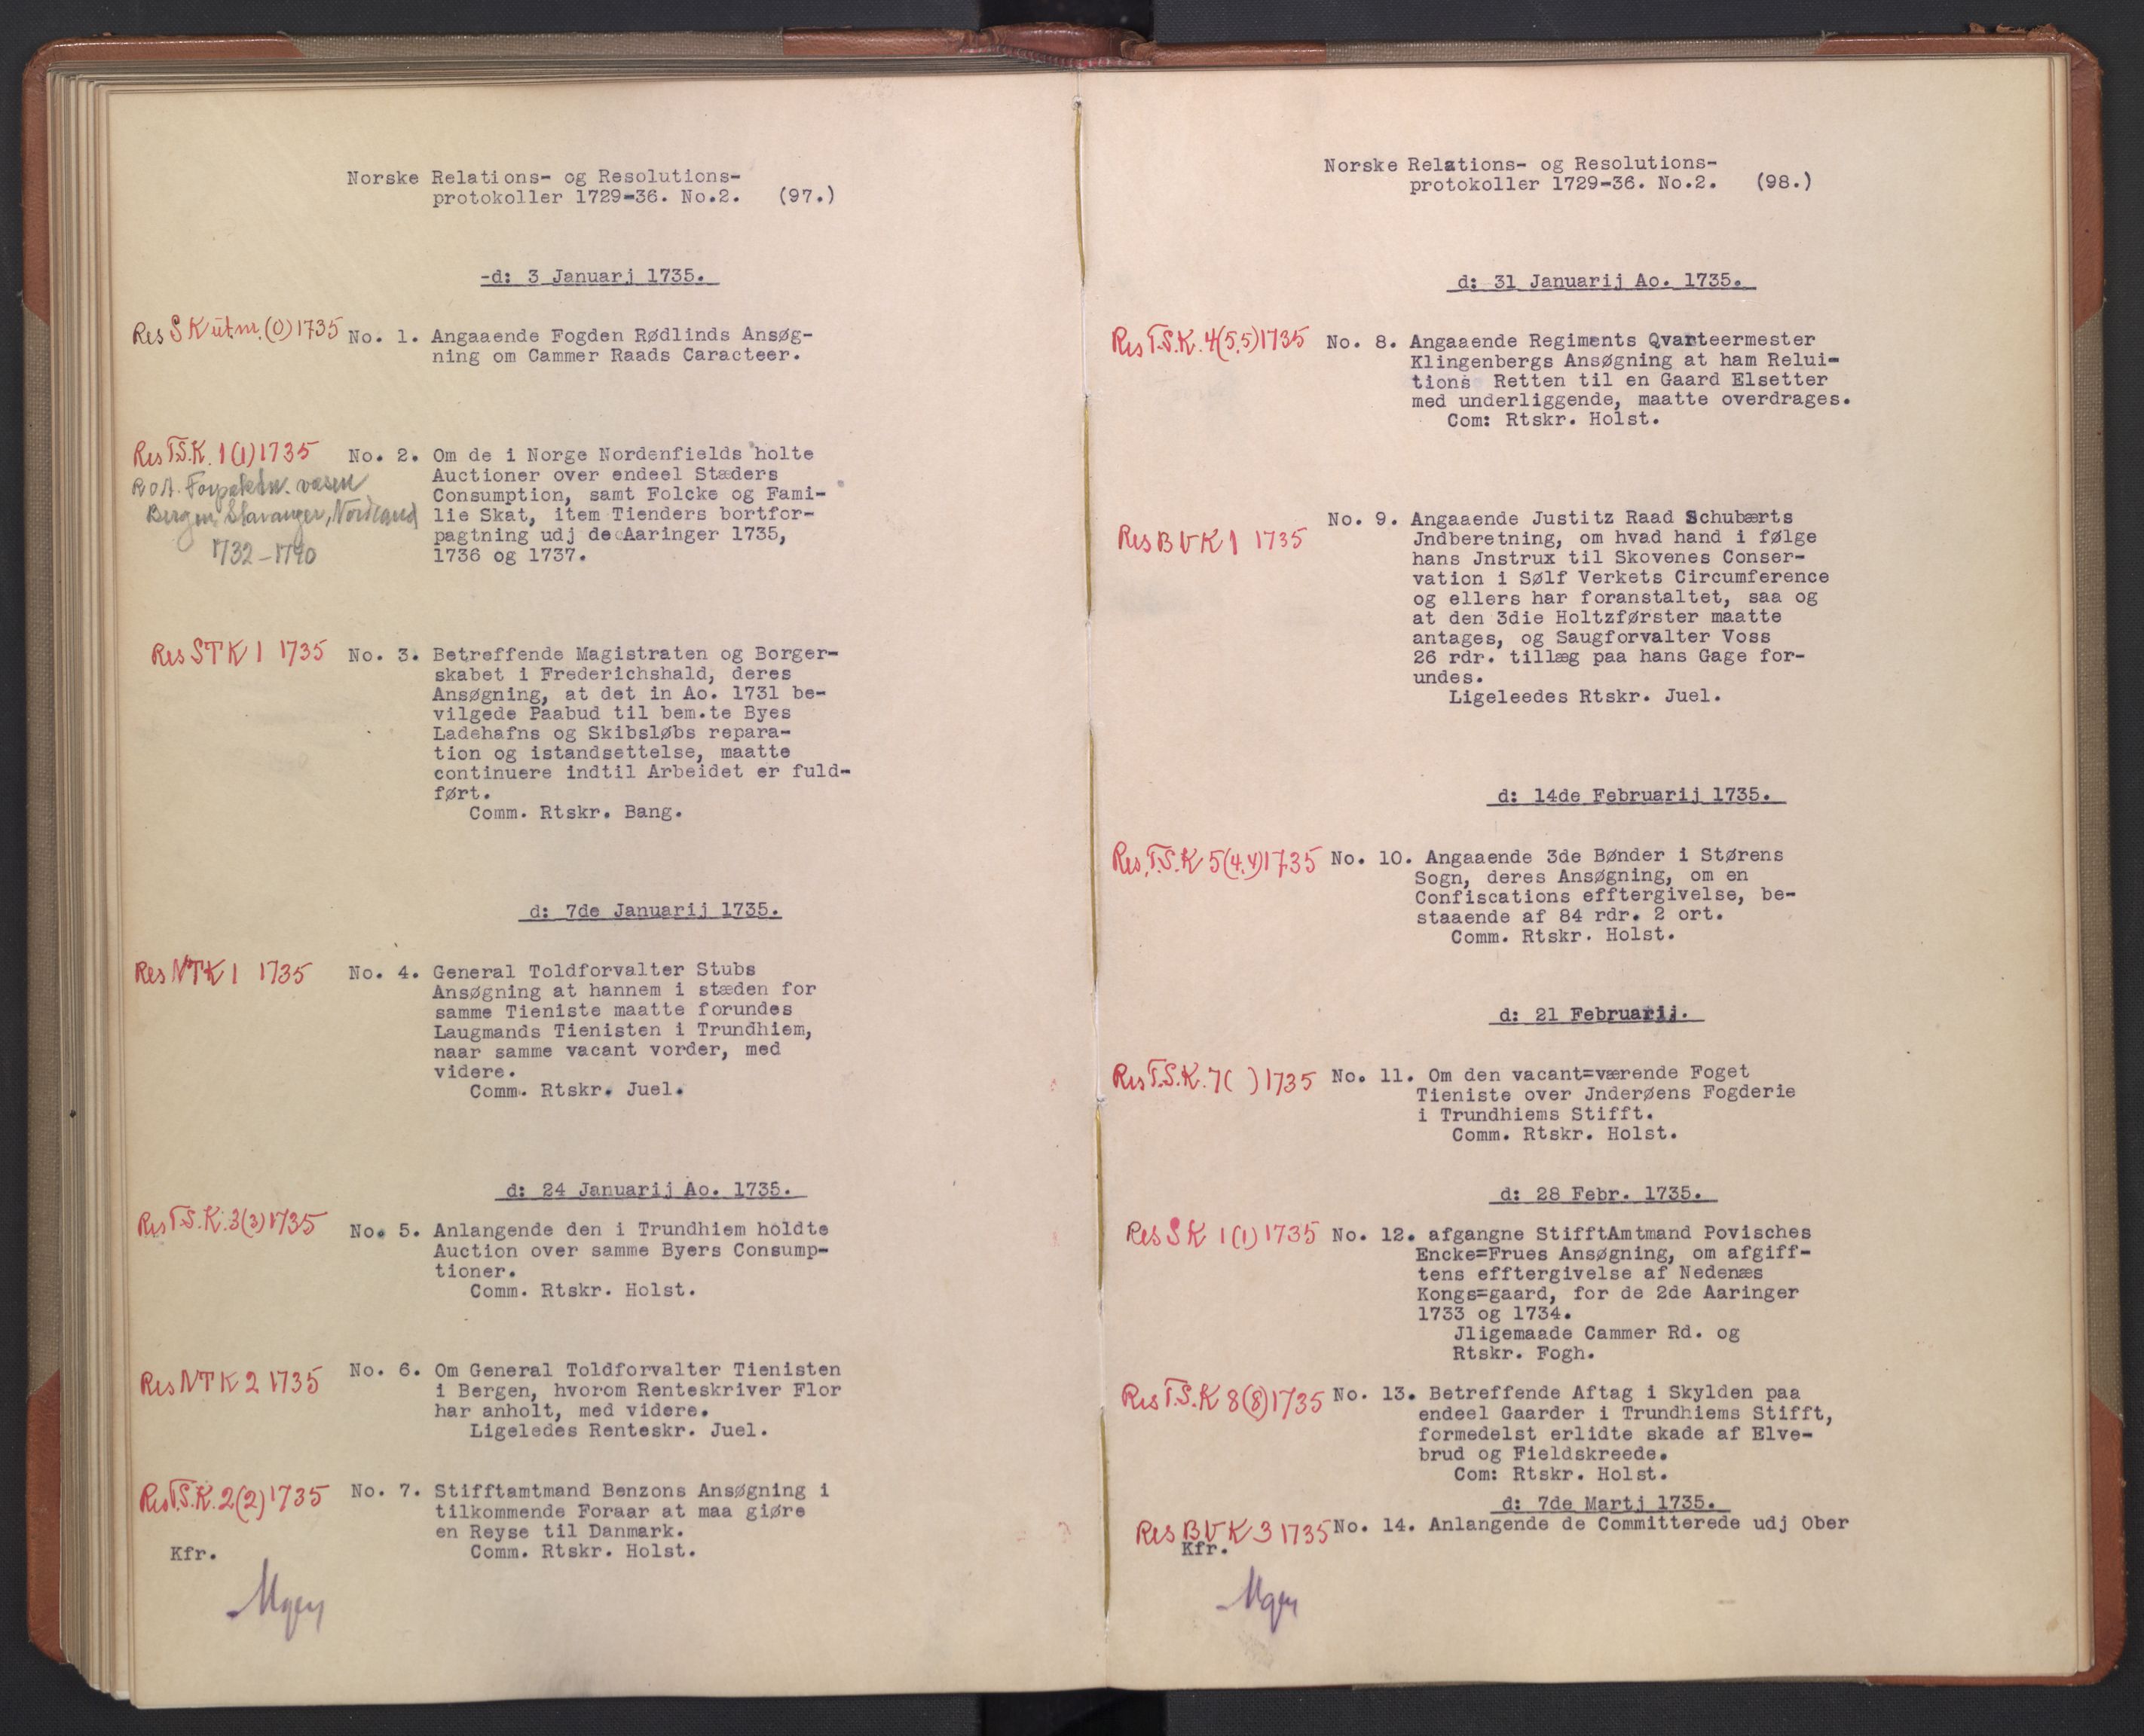 Norske Relations- og Resolutions-
protokoller 1729-36. No.2. (97.)
-d: 3 Januarj 1735.
Res SK utnr. (0) 1735 No. 1. Angaaende Fogden Rødlinds Ansøg-
ning om Cammer Raads Caracteer.
Res T.S.K. 1(1) 1735 No. 2. Om de i Norge Nordenfields holte
Auctioner over endeel Stæders
Consumption, samt Folcke og Fami-
lie Skat, item Tienders bortfor-
pagtning udj de Aaringer 1735,
1736 og 1737.
ROA. Forpaktn. vesen
Bergen, Stavanger, Nordland
1732-1740
Res STK 1 1735 No. 3. Betreffende Magistraten og Borger-
skabet i Frederichshald, deres
Ansøgning, at det in Ao. 1731 be-
vilgede Paabud til bem.te Byes
Ladehafns og Skibsløbs repara-
tion og istandsettelse, maatte
continuere indtil Arbeidet er fuld-
ført.
Comm. Rtskr. Bang.
d: 7de Januarij 1735.
Res NTK 1 1735 No. 4. General Toldforvalter Stubs
Ansøgning at hannem i stæden for
samme Tieniste maatte forundes
Laugmands Tienisten i Trundhiem,
naar samme vacant vorder, med
videre.
Comm. Rtskr. Juel.
d: 24 Januarij Ao. 1735.
Res T.S.K. 3(3) 1735 No. 5. Anlangende den i Trundhiem holdte
Auction over samme Byers Consump-
tioner.
Comm. Rtskr. Holst.
Res NTK 2 1735 No. 6. Om General Toldforvalter Tienisten
i Bergen, hvorom Renteskriver Flor
har anholt, med videre.
Ligeledes Renteskr. Juel.
Res T.S.K. 2(2) 1735 No. 7. Stifftamtmand Benzons Ansøgning i
tilkommende Foraar at maa giøre
en Reyse til Danmark.
Comm. Rtskr. Holst.
Kfr.
Norske Relations- og Resolutions-
protokoller 1729-36. No.2. (98.)
d: 31 Januarij Ao. 1735.
Res T.S.K. 4(5,5) 1735 No. 8. Angaaende Regiments Qvarteermester
Klingenbergs Ansøgning at ham Relui-
tions Retten til en Gaard Elsetter
med underliggende, maatte overdrages.
Com: Rtskr. Holst.
Res BVK 1 1735 No. 9. Angaaende Justitz Raad Schubærts
Jndberetning, om hvad hand i følge
hans Jnstrux til Skovenes Conser-
vation i Sølf Verkets Circumference
og ellers har foranstaltet, saa og
at den 3die Holtzførster maatte
antages, og Saugforvalter Voss
26 rdr. tillæg paa hans Gage for-
undes.
Ligeleedes Rtskr. Juel.
d: 14de Februarij 1735.
Res. T.S.K 5(4,4) 1735 No. 10. Angaaende 3de Bønder i Størens
Sogn, deres Ansøgning, om en
Confiscations efftergivelse, be-
staaende af 84 rdr. 2 ort.
Comm. Rtskr. Holst.
d: 21 Februarij.
Res T.S.K. 7( ) 1735 No. 11. Om den vacant=værende Foget
Tieniste over Jnderøens Fogderie
i Trundhiems Stifft.
Comm. Rtskr. Holst.
d: 28 Febr. 1735.
Res SK 1(1) 1735 No. 12. afgangne StifftAmtmand Povisches
Encke=Frues Ansøgning, om afgiff-
tens efftergivelse af Nedenæs
Kongs=gaard, for de 2de Aaringer
1733 og 1734.
Jligemaade Cammer Rd. og
Rtskr. Fogh.
Res T.S.K 8(8) 1735 No. 13. Betreffende Aftag i Skylden paa
endeel Gaarder i Trundhiems Stifft,
formedelst erlidte skade af Elve-
brud og Fieldskreede.
Com: Rtskr. Holst.
d: 7de Martj 1735.
Res BVK 3 1735 No. 14. Anlangende de Committerede udj Ober
Kfr.